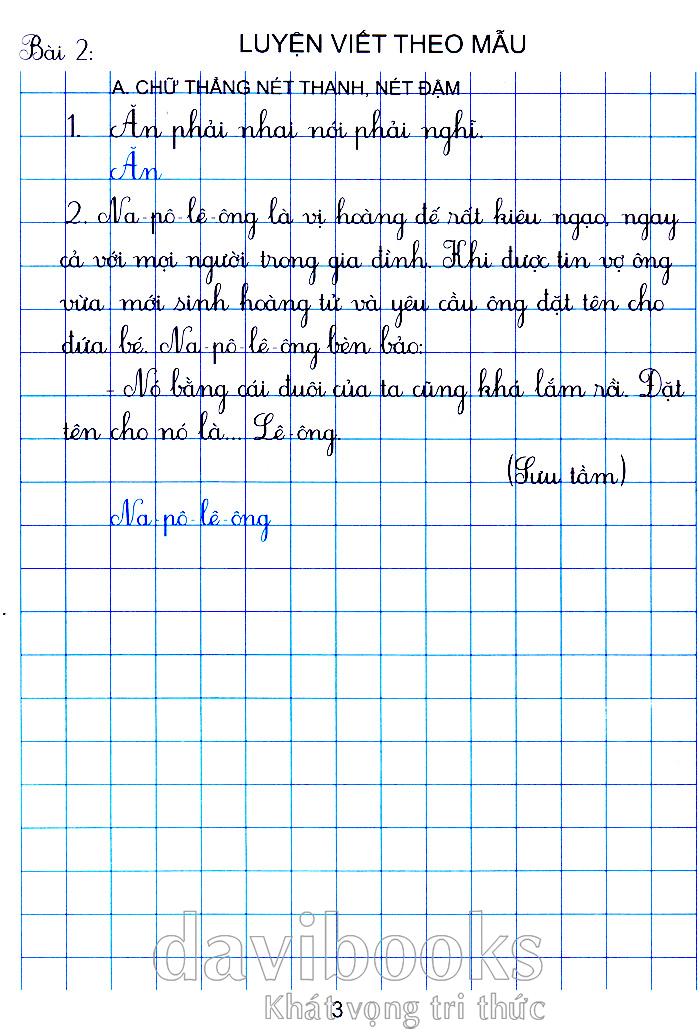 Bài 2:
LUYỆN VIẾT THEO MẪU
A. CHỮ THẲNG NÉT THANH, NÉT ĐẬM
1. Ăn phải nhai nói phải nghĩ.
Ăn
2. Na-pô-lê-ông là vị hoàng đế rất kiêu ngạo, ngay
cả với mọi người trong gia đình. Khi được tin vợ ông
vừa mới sinh hoàng tử và yêu cầu ông đặt tên cho
đứa bé. Na-pô-lê-ông bèn bảo:
- Nó bằng cái đuôi của ta cũng khá lắm rồi. Đặt
tên cho nó là... Lê-ông.
(Sưu tầm)
Na-pô-lê-ông
davibooks
Khát vọng tri thức
3